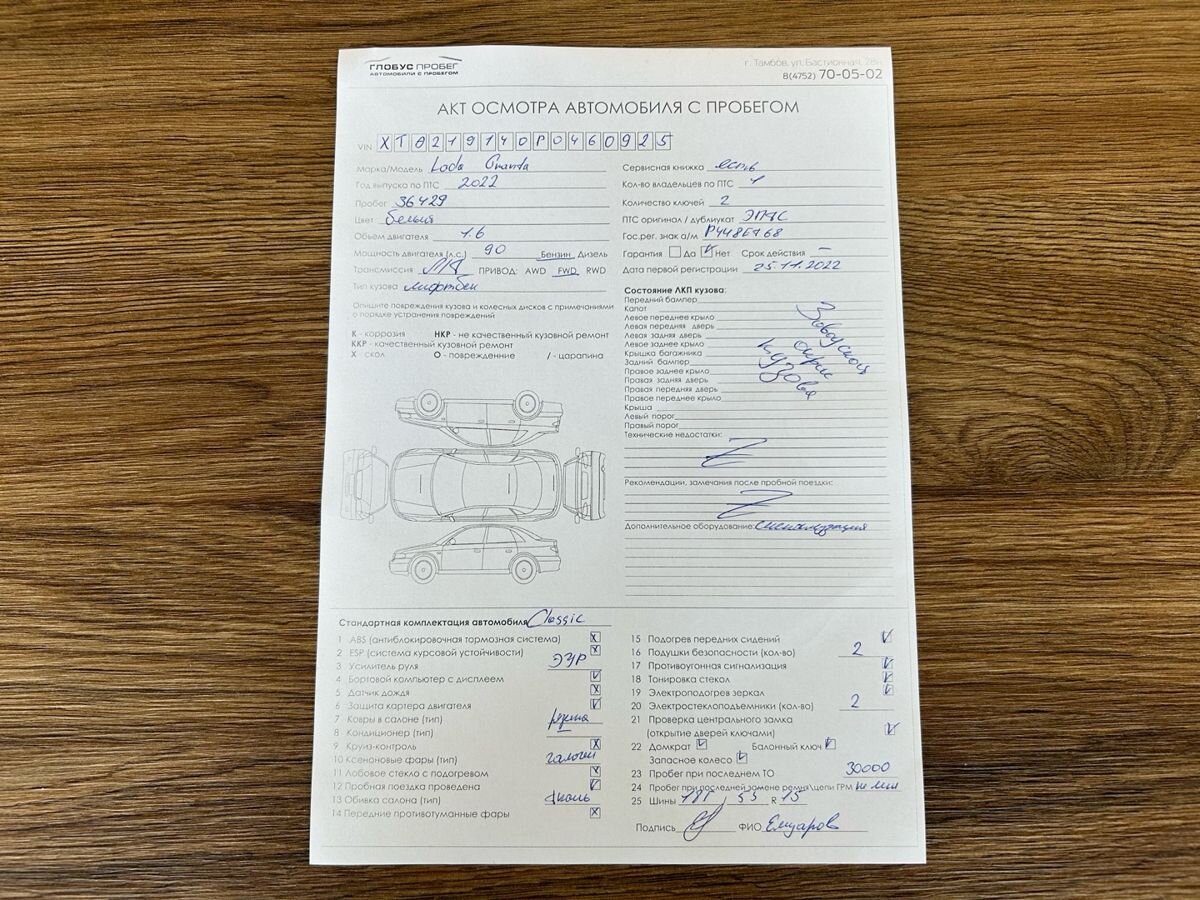 ГЛОБУС ПРОБЕГ
АВТОМОБИЛИ С ПРОБЕГОМ
г. Тамбов, ул. Бастионная,
8(4752) 70-05-02
АКТ ОСМОТРА АВТОМОБИЛЯ С ПРОБЕГОМ
VIN XTA219140P0460925
Марка/Модель Lada Granta
Год выпуска по ПТС 2022
Пробег 36429
Цвет белый
Объем двигателя 1.6
Мощность двигателя (л.с.) 90 Бензин Дизель
Трансмиссия ПРИВОД: AWD FWD RWD
Тип кузова лифтбек
Опишите повреждения кузова и колесных дисков с примечаниями
о порядке устранения повреждений
К - коррозия НКР - не качественный кузовной ремонт
ККР - качественный кузовной ремонт
Х - скол О - повреждение / - царапина
Сервисная книжка есть
Кол-во владельцев по ПТС 1
Количество ключей 2
ПТС оригинал / дубликат ЭПТС
Гос.рег. знак а/м Р448ЕТ68
Гарантия Да Нет Срок действия –
Дата первой регистрации 25.11.2022
Состояние ЛКП кузова:
Передний бампер
Капот
Левое переднее крыло
Левая передняя дверь
Левая задняя дверь
Левое заднее крыло
Крышка багажника
Задний бампер
Правое заднее крыло
Правая задняя дверь
Правая передняя дверь
Правое переднее крыло
Крыша
Левый порог
Правый порог
Заводской
окрас
кузова
Технические недостатки:
Z
Рекомендации, замечания после пробной поездки:
Z
Дополнительное оборудование: сигнализация
Стандартная комплектация автомобиля Classic
1 ABS (антиблокировочная тормозная система) X
2 ESP (система курсовой устойчивости) X
3 Усилитель руля ЭУР
4 Бортовой компьютер с дисплеем V
5 Датчик дождя X
6 Защита картера двигателя V
7 Ковры в салоне (тип) резина
8 Кондиционер (тип) –
9 Круиз-контроль X
10 Ксеноновые фары (тип) галоген
11 Лобовое стекло с подогревом X
12 Пробная поездка проведена V
13 Обивка салона (тип) ткань
14 Передние противотуманные фары X
15 Подогрев передних сидений V
16 Подушки безопасности (кол-во) 2
17 Противоугонная сигнализация V
18 Тонировка стекол V
19 Электроподогрев зеркал V
20 Электростеклоподъемники (кол-во) 2
21 Проверка центрального замка
(открытие дверей ключами) V
22 Домкрат V Балонный ключ V
Запасное колесо V
23 Пробег при последнем ТО 30000
24 Пробег при последней замене ремня\цепи ГРМ
25 Шины 185 / 55 R 15
Подпись ФИО